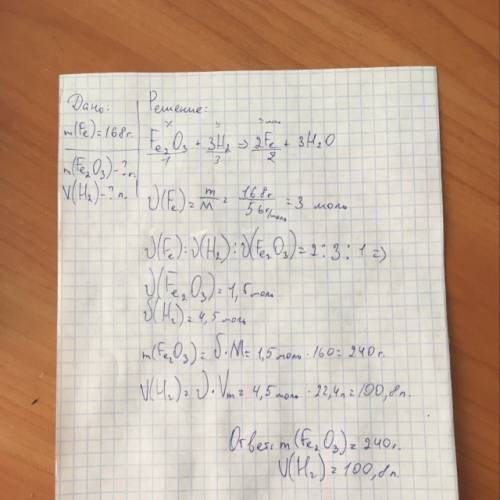 Дано:
m(Fe)=168г.
m(Fe₂O₃)-?г.
V(H₂)-?л.
Решение:
x y 3моль
Fe₂O₃ + 3H₂ => 2Fe + 3H₂O
1 3 2
ν(Fe)= m/M = 168г/56г/моль = 3 моль
ν(Fe):ν(H₂):ν(Fe₂O₃)=2:3:1=>
ν(Fe₂O₃)=1,5моль
ν(H₂)=4,5моль
m(Fe₂O₃)=ν·M=1,5моль·160=240г.
V(H₂)=ν·Vm=4,5моль·22,4л=100,8л.
Ответ: m(Fe₂O₃)=240г.
V(H₂)=100,8л.